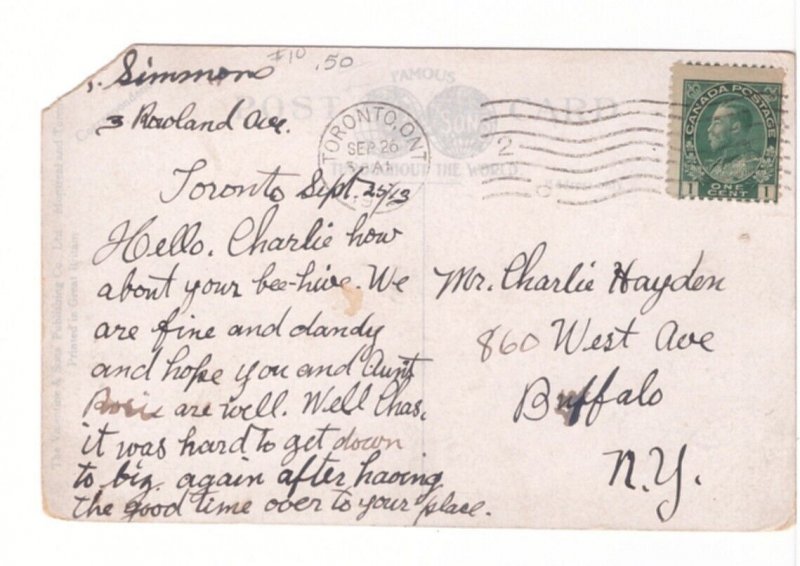 Simmons
#10 .50
3 Rowland Ave.
FAMOUS
POST CARD
SON
THROUGHOUT THE WORLD
TORONTO, ONT
SEP 26
2
CANADA POSTAGE
1 ONE CENT 1
Toronto Sept. 25/13
Hello. Charlie how
about your bee-hive. We
are fine and dandy
and hope you and Aunt
Rosie are well. Well Chas.
it was hard to get down
to biz. again after having
the good time over to your place.
Mr. Charlie Hayden
860 West Ave
Buffalo
N.Y.
The Valentine & Sons Publishing Co., Ltd. Montreal and Toronto
Printed in Great Britain